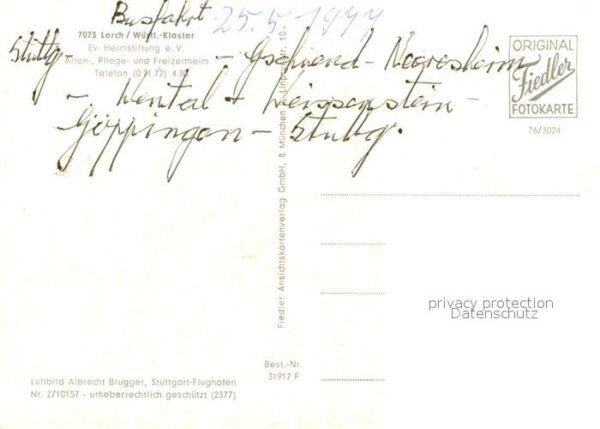 Busfahrt 25.5.1977
7073 Lorch / Württ.-Kloster
Ev. Heimstiftung e. V.
Alten-, Pflege- und Freizeitheim
Telefon (071 72) 4 30
Stuttg- - Gschwend - Neresheim
- Wental + Weissenstein -
Göppingen - Stuttg.
ORIGINAL
Fiedler
FOTOKARTE
76/3024
Fiedler Ansichtskartenverlag GmbH, 8 München
privacy protection
Datenschutz
Best.-Nr.
31917 F
Luftbild Albrecht Brugger, Stuttgart-Flughafen
Nr. 2/10157 - urheberrechtlich geschützt (2377)